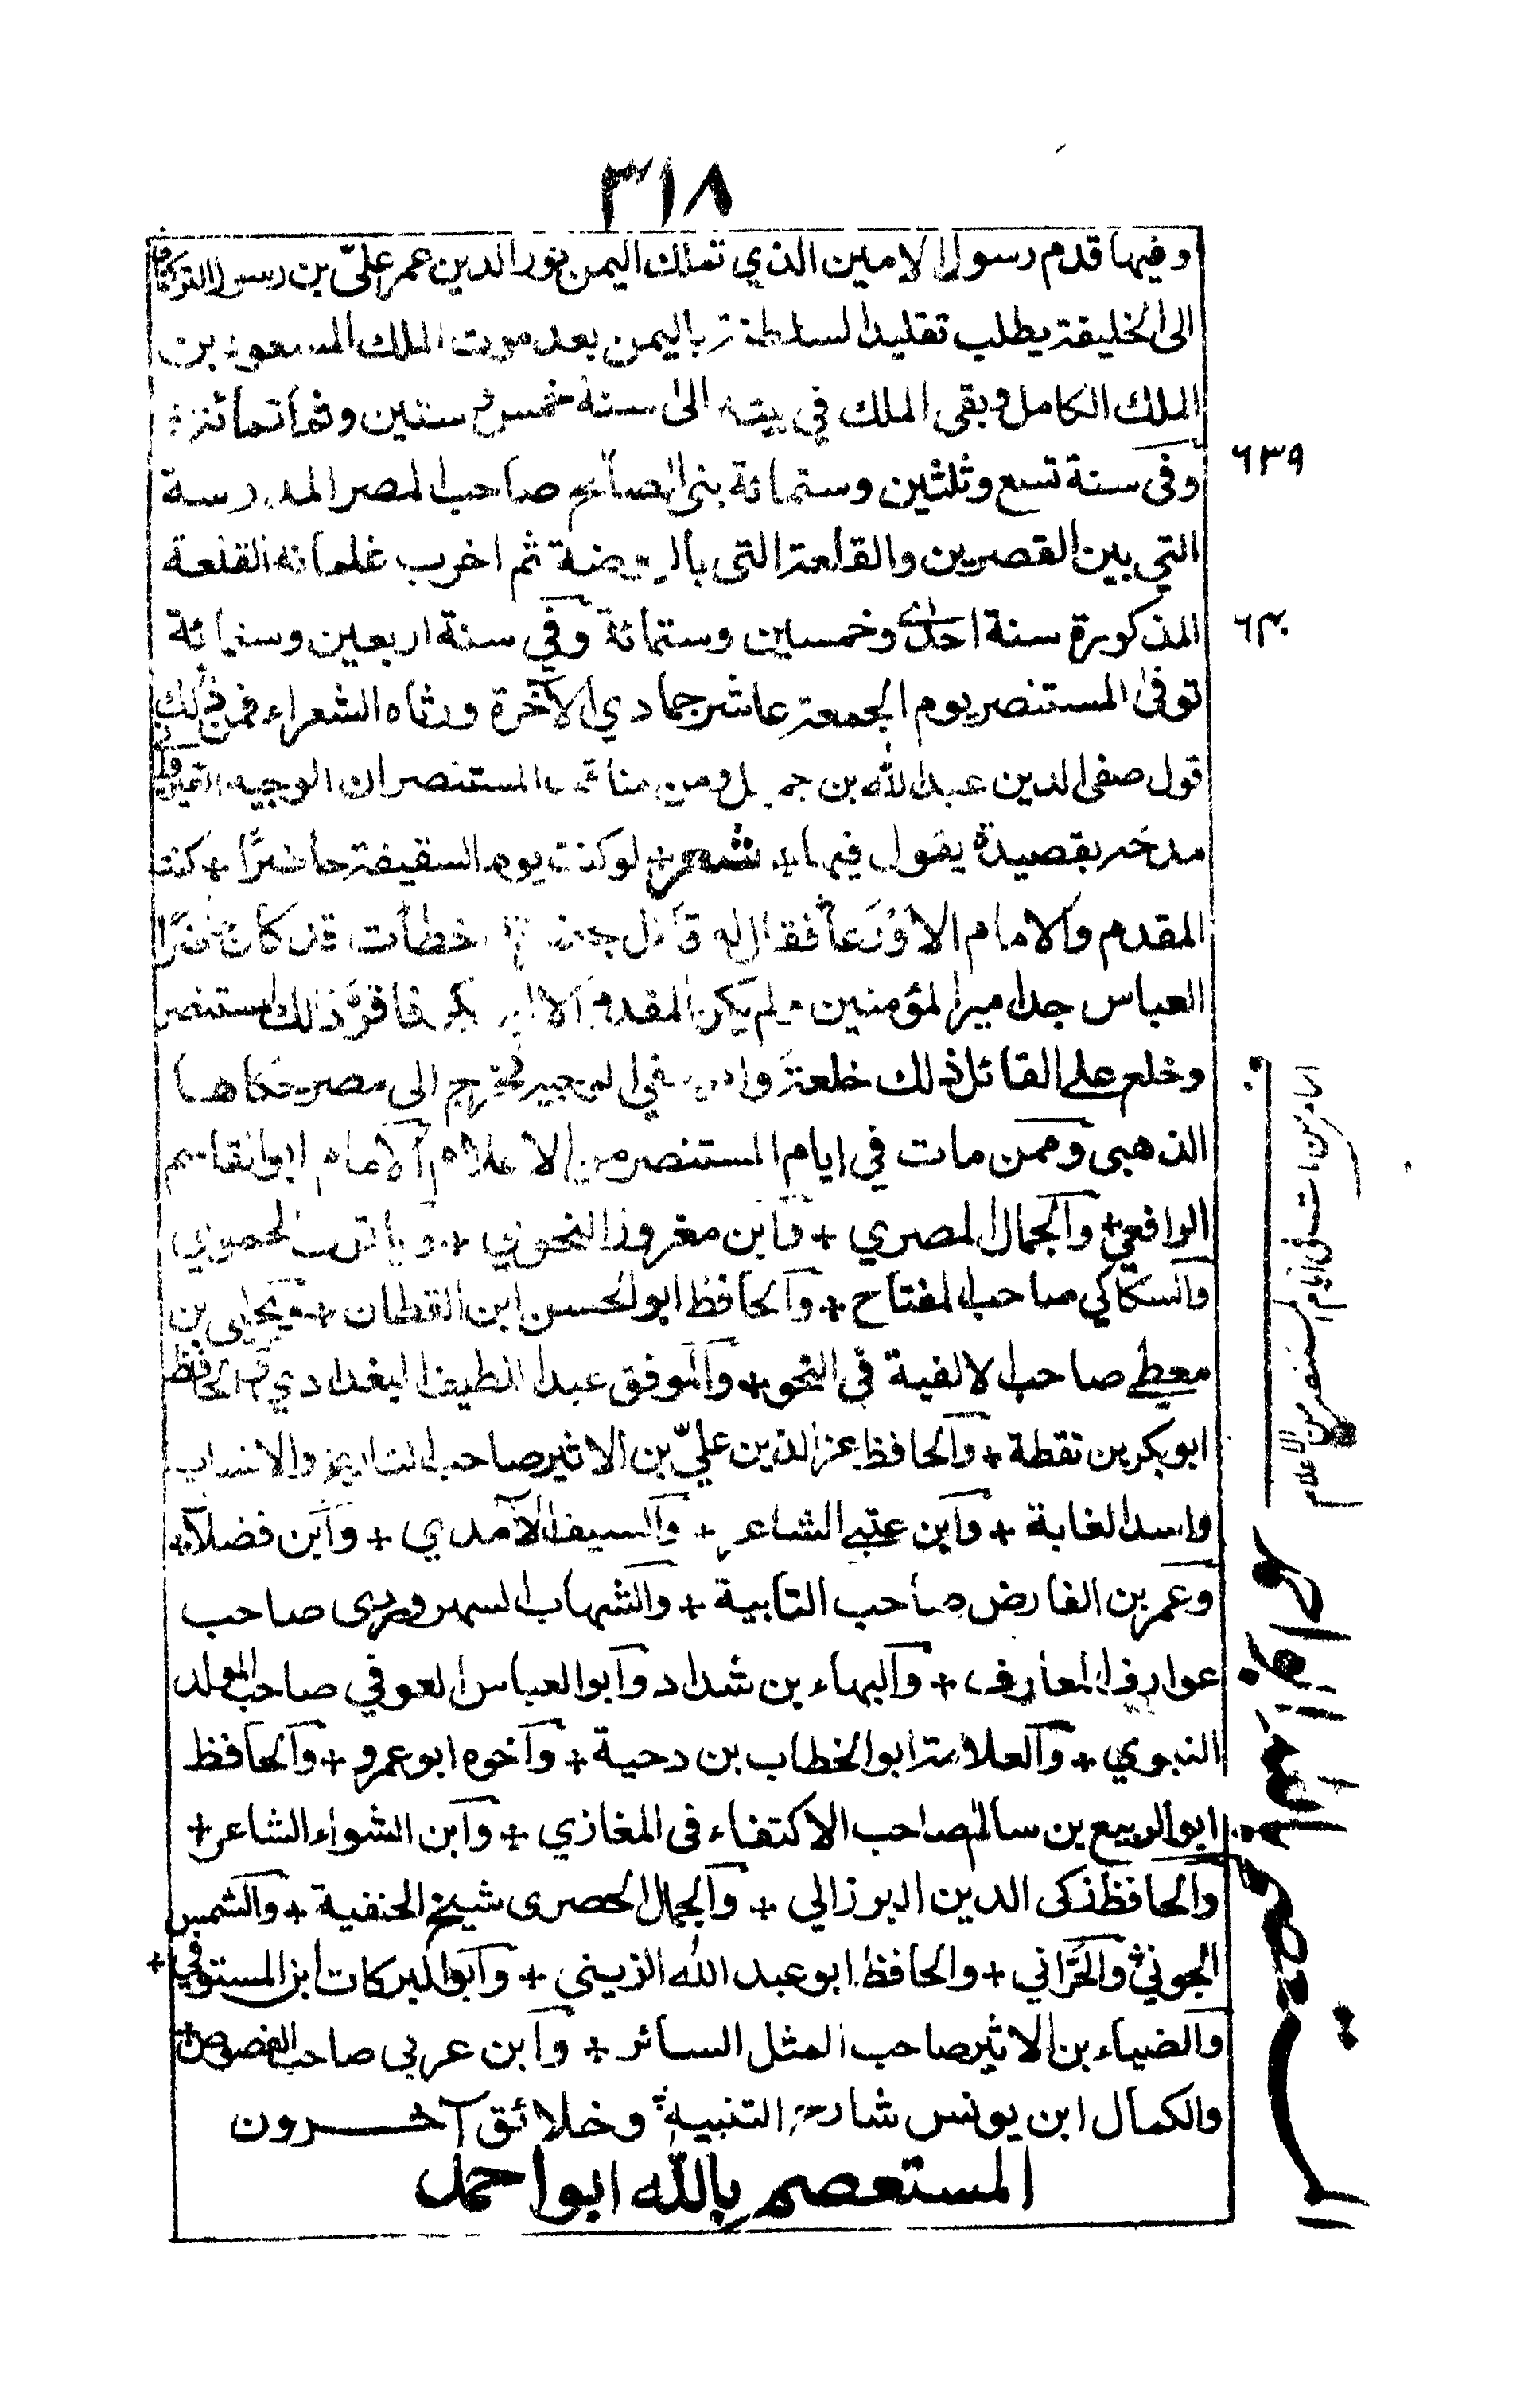 ٣١٨
وفيها قدم رسول الامين الذي تملك اليمن نور الدين عمر علىّ بن رسول التركماني
الى الخليفة يطلب تقليد السلطنة باليمن بعد موت الملك المسعود بن
الملك الكامل وبقى الملك في بيته الى سنة خمس وستين وثمانمائة
٦٣٩
وفى سنة تسع وثلثين وستمائة بنى الصالح صاحب المصر المدرسة
التي بين القصرين والقلعة التى بالروضة ثم اخرب غلمانه القلعة
٦٤٠
المذكورة سنة احدى وخمسين وستمائة وفي سنة اربعين وستمائة
توفى المستنصر يوم الجمعة عاشر جمادي الآخرة ورثاه الشعراء فمن ذلك
قول صفى الدين عبد الله بن جميل ومن مناقب المستنصر ان الوجيه القيرواني
مدحه بقصيدة يقول فيها + شعر + لو كنت يوم السقيفة حاضرًا + كنت
المقدم والامام الاورعا فقال له قائل خطأت قد كان حاضرًا
العباس جد امير المؤمنين ولم يكن المقدم الا ابو بكر فاقر ذلك المستنصر
وخلع على القائل ذلك خلعة وامر بنفي الوجيه فخرج الى مصر حكاها
الذهبى وممن مات في ايام المستنصر من الاعلام الامام ابو القاسم
الرافعي + والجمال المصري + وابن مغروز النحوي + وياقوت الحموي
والسكاكي صاحب المفتاح + والحافظ ابو الحسن ابن القطان + ويحيى بن
معطي صاحب الالفية فى النحو + والموفق عبد اللطيف البغدادي + والحافظ
ابو بكر بن نقطة + والحافظ عز الدين عليّ بن الاثير صاحب التاريخ والانساب
واسد الغابة + وابن عتبي الشاعر + والسيف الآمدي + وابن فضلان +
وعمر بن الفارض صاحب التايية + والشهاب السهروردى صاحب
عوارف المعارف + والبهاء بن شداد وابو العباس العوفي صاحب المولد
النبوي + والعلامة ابو الخطاب بن دحية + واخوه ابو عمرو + والحافظ
ابو الربيع بن سالم صاحب الاكتفاء فى المغازي + وابن الشواء الشاعر +
والحافظ زكى الدين البرزالي + والجمال الحصرى شيخ الحنفية + والشمس
الجوني والحرّاني + والحافظ ابو عبد الله الزيسى + وابو البركات ابن المستوفي +
والضياء بن الاثير صاحب المثل السائر + وابن عربى صاحب الفصوص +
والكمال ابن يونس شارح التنبيه + وخلائق آخرون
المستعصم بالله ابو احمد
مات فى ايام المستنصر من الاعلام